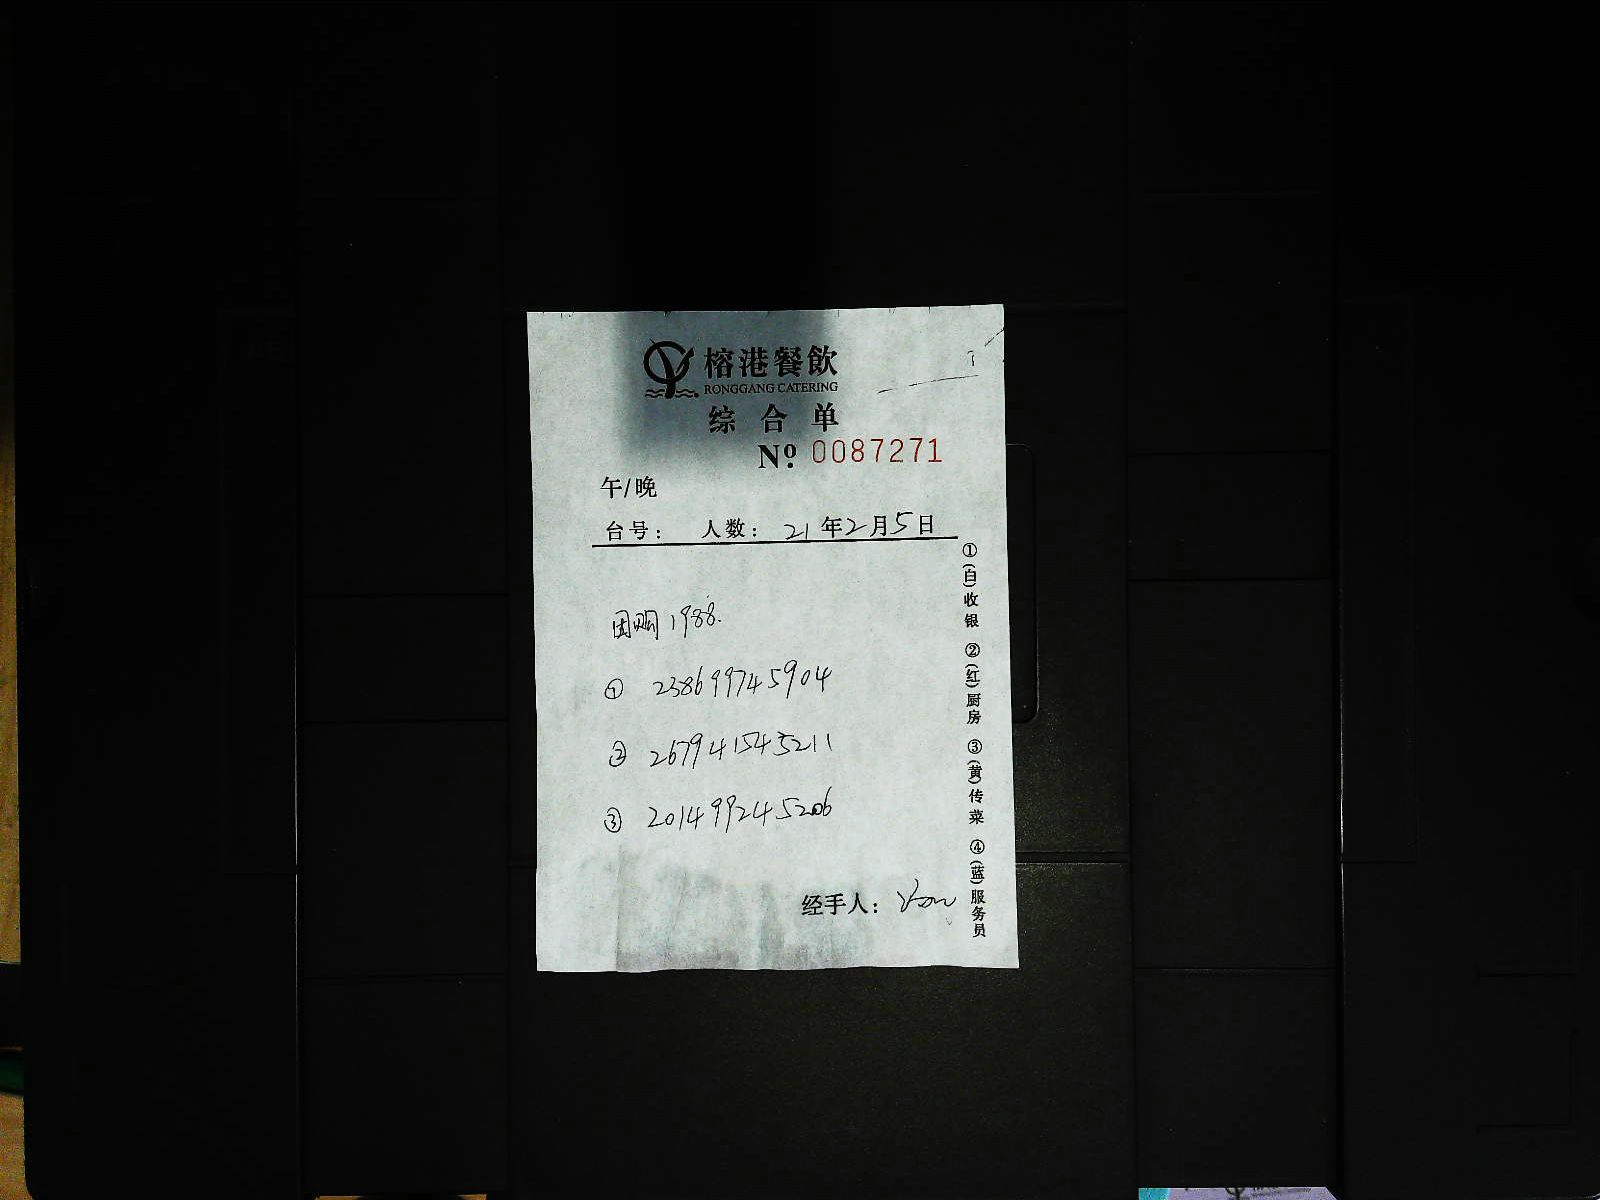 榕港餐飲
RONGGANG CATERING
综合单
Nº. 0087271
午/晚
台号： 人数： 21年2月5日
团购1988.
① 238699745904
② 267941545211
③ 201499245206
经手人：
①(白)收银 ②(红)厨房 ③(黄)传菜 ④(蓝)服务员